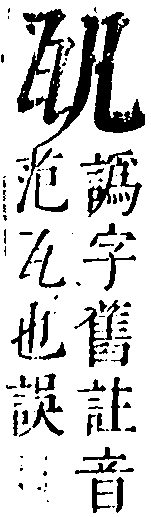 譌字舊註音
范瓦也誤